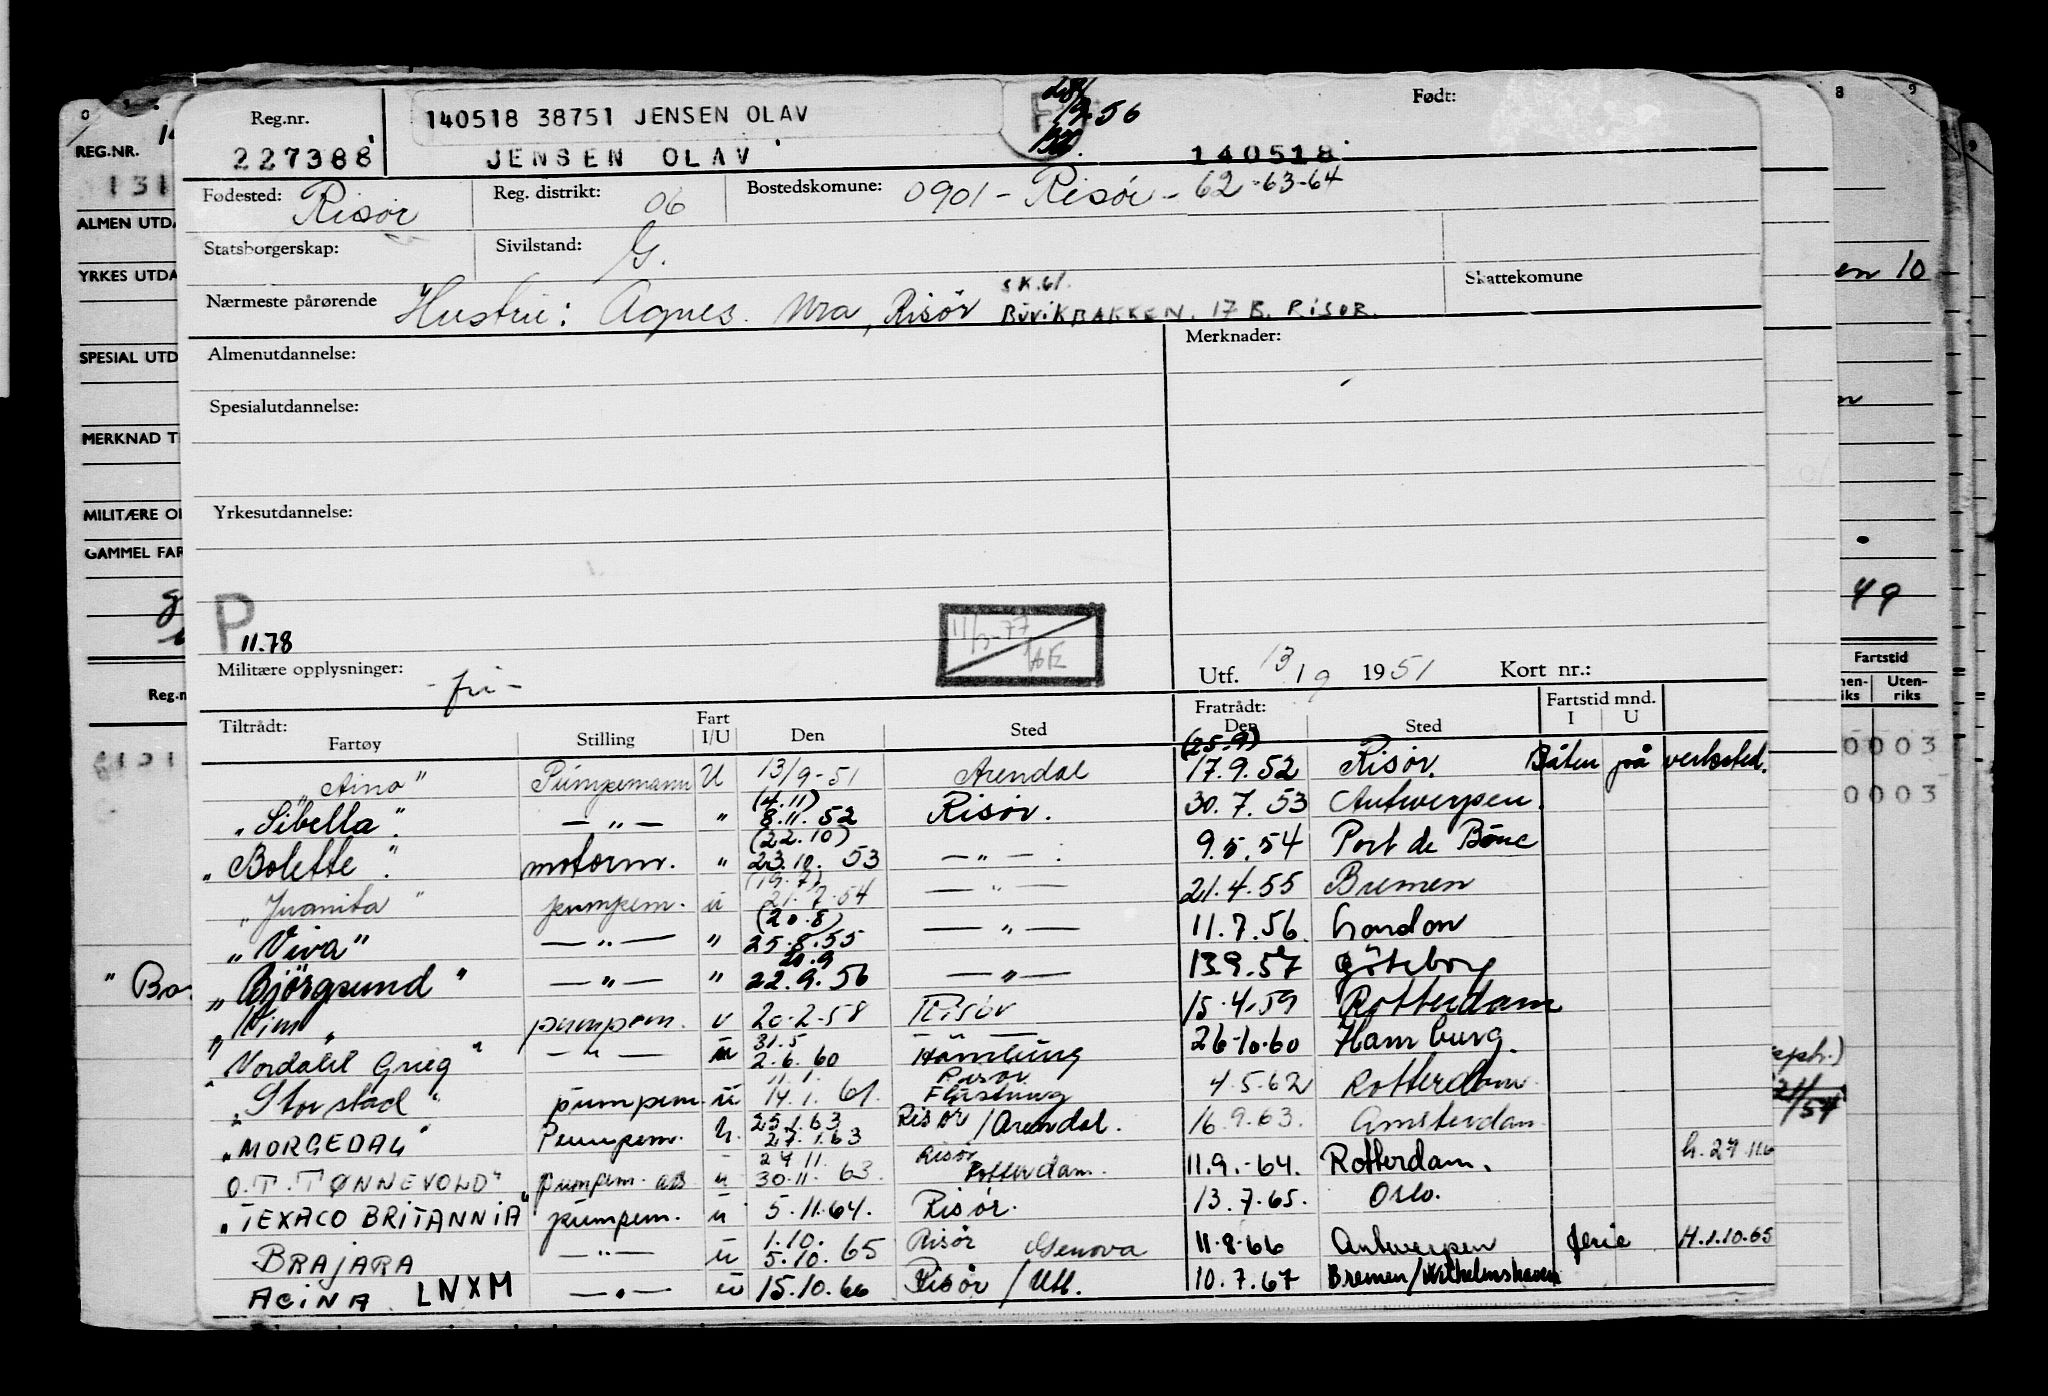 Reg.nr. 140518 38751 JENSEN OLAV 56 Født:
227388 JENSEN OLAV 140518
Fødested: Risør Reg. distrikt: 06 Bostedskomune: 0901 - Risør - 62-63-64
Statsborgerskap: Sivilstand: G.
Skattekomune
Nærmeste pårørende Hustru: Agnes. Ura, Risør BUVIKBAKKEN. 17 B. RISØR.
Almenutdannelse: Merknader:
Spesialutdannelse:
Yrkesutdannelse:
P 11.78
Militære opplysninger: - fri - Utf. 13/9 1951 Kort nr.:
Tiltrådt: Fratrådt: Fartstid mnd.
Fartøy Stilling Fart I/U Den Sted Den Sted I U
"Aino" Pumpemann U 13/9-51 Arendal (25.9) 17.9.52 Risør. Båten på verksted.
"Sibella". — " — " (4.11) 8.11.52 Risør. 30.7.53 Antwerpen.
"Bolette". motorm. " (22.10) 23.10.53 — " — 9.5.54 Port de Bouc
"Juanita" pumpem. u (19.7) 21.7.54 — " — 21.4.55 Bremen
"Viva" — " — " (20.8) 25.8.55 — " — 11.7.56 London
"Björgsund" — " — " 20.9 22.9.56 — " — 13.9.57 Göteborg
pumpem. u 20-2-58 Risör 15-4-59 Rotterdam
"Nordahl Grieg" — " — u 31.5 2.6.60 Hamburg 26-10-60 Hamburg.
"Storstad" pumpem. u 11.1. 14.1.61. Risør 4.5.62 Rotterdam
"MORGEDAL" Pumpem. u. 25.1.63 27.1.63 Risør/Arendal. 16.9.63. Amsterdam
O.T. TØNNEVOLD" pumpem. u 27.11 30.11.63 Risør Rotterdam. 11.9.-64. Rotterdam.
"TEXACO BRITANNIA" pumpem. u 5.11.64. Risør. 13.7.65. Oslo.
BRAJARA — " — u 1.10. 5.10.65 Risør Genova 11.8.66 Antwerpen ferie H.1.10.65
ACINA LNXM — " — u 15.10.66 Risør/Utl. 10.7.67 Bremen/Wilhelmshaven
REG.NR.
ALMEN UTDA
YRKES UTDA
SPESIAL UTD
MERKNAD T
MILITÆRE O
GAMMEL FAR
Reg.n
"Bo
en 10
49
Fartstid
Uten-
riks
0003
0003